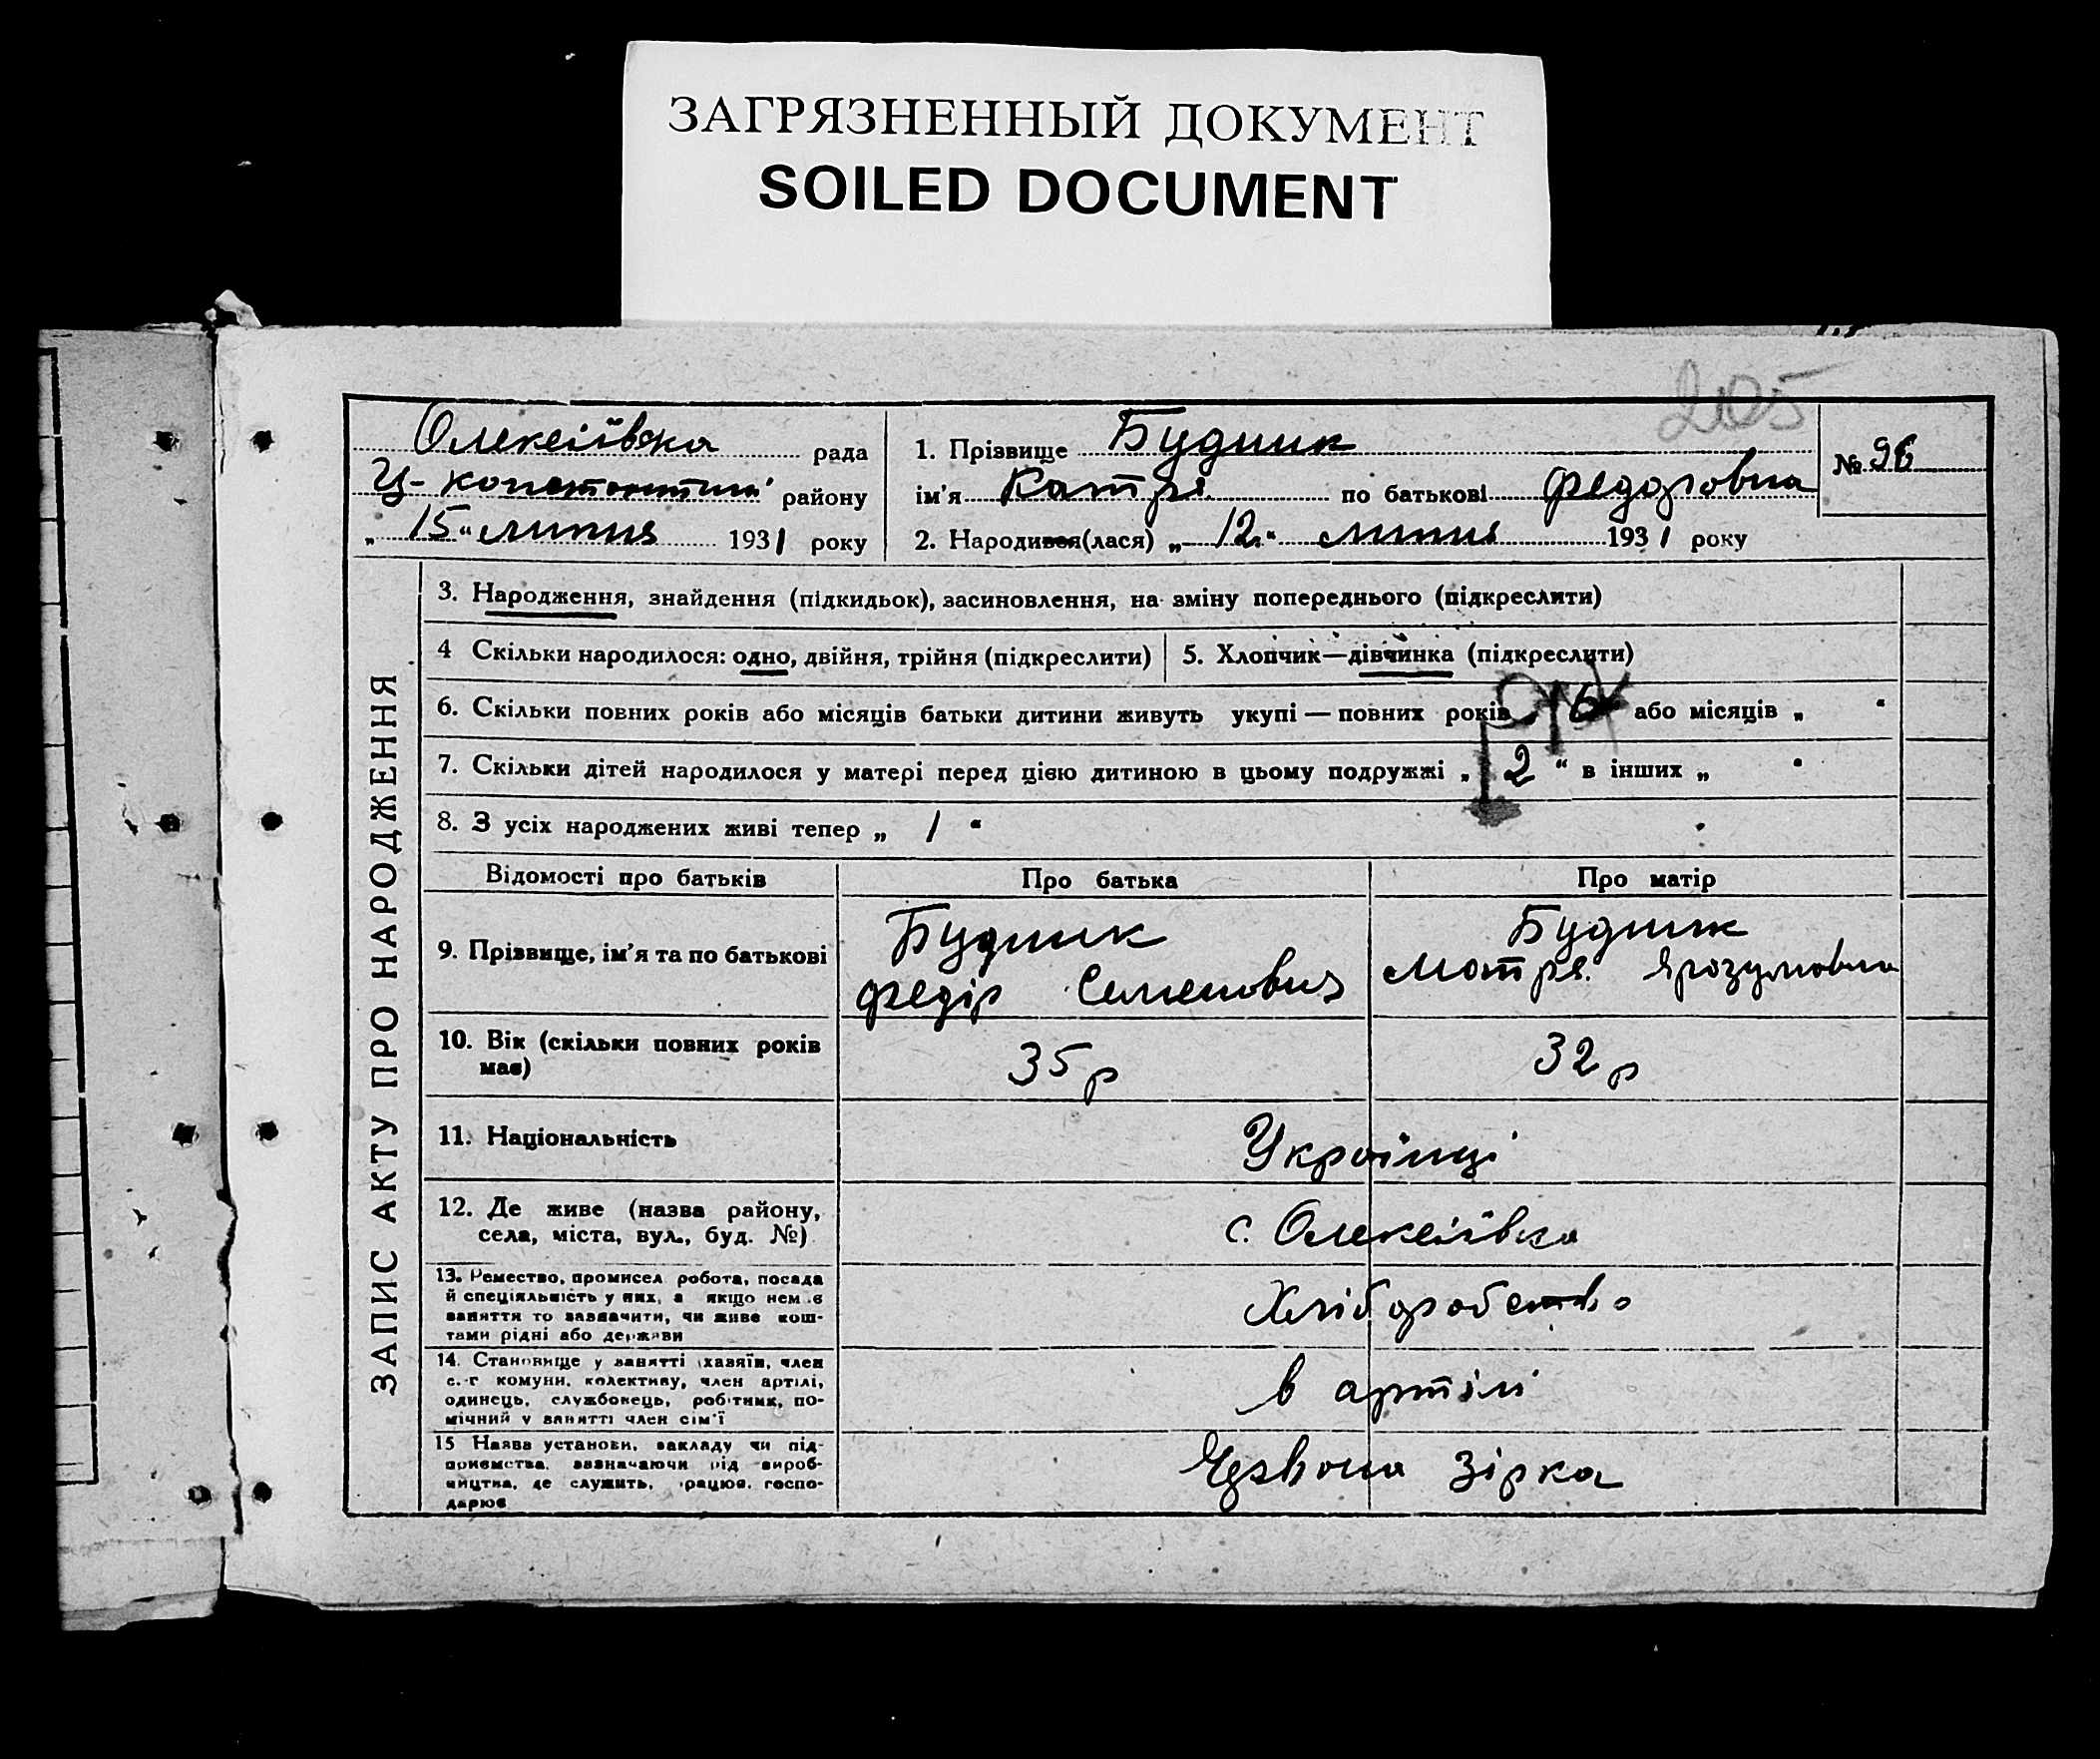 ЗАГРЯЗНЕННЫЙ ДОКУМЕНТ
SOILED DOCUMENT
205
Олексіївка рада
Ц-констонтин' району
„ 15 " липня 1931 року
1. Прізвище Будник
ім'я Катря по батькові Федоровна
№ 96
2. Народився(лася) „ 12. " липня 1931 року
ЗАПИС АКТУ ПРО НАРОДЖЕННЯ
3. Народження, знайдення (підкидьок), засиновлення, на зміну попереднього (підкреслити)
4 Скільки народилося: одно, двійня, трійня (підкреслити)
5. Хлопчик—дівчинка (підкреслити)
6. Скільки повних років або місяців батьки дитини живуть укупі — повних років або місяців „ "
7. Скільки дітей народилося у матері перед цією дитиною в цьому подружжі „ 2 " в інших „ "
8. З усіх народжених живі тепер „ 1 "
Відомості про батьків Про батька Про матір
9. Прізвище, ім'я та по батькові
Будник
Федір Семенович
Будник
Мотря
10. Вік (скільки повних років
має)
35 р
32 р
11. Національність
Українці
12. Де живе (назва району,
села, міста, вул., буд. №)
с. Олексіївка
13. Ремество, промисел робота, посада
й спеціяльність у них, а якщо нем є
заняття то зазначити, чи живе кош-
тами рідні або держави
Хліборобство
14. Становище у занятті (хазяїн, член
с.-г комуни, колективу, член артілі,
одинець, службовець, робітник, по-
мічний у занятті член сім'ї
в артілі
15 Назва установи, закладу чи під-
приємства, зазначаючи рід вироб-
ництва, де служить, працює, госпо-
дарює
Червона Зірка